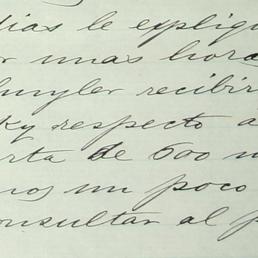 dias le expliqu
r unas hora
huyler recibir
ky respecto a
rta de 600 m
nos un poco
consultar al p